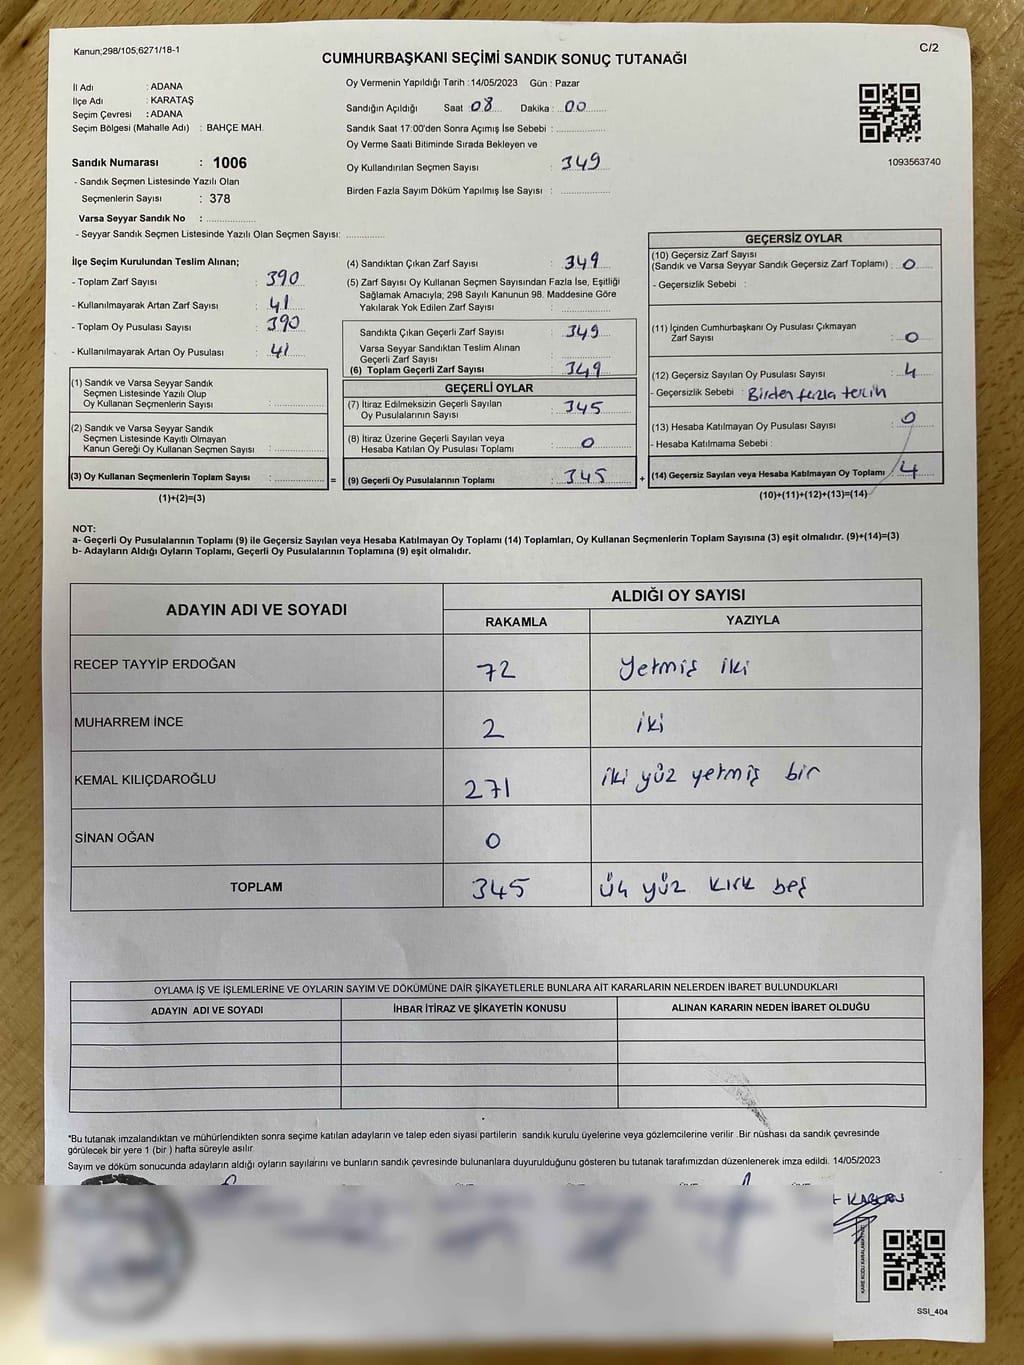 Kanun;298/105,6271/18-1
C/2
CUMHURBAŞKANI SEÇİMİ SANDIK SONUÇ TUTANAĞI
İl Adı : ADANA
İlçe Adı : KARATAŞ
Seçim Çevresi : ADANA
Seçim Bölgesi (Mahalle Adı) : BAHÇE MAH.
Sandık Numarası : 1006
- Sandık Seçmen Listesinde Yazılı Olan
Seçmenlerin Sayısı : 378
Varsa Seyyar Sandık No : ...............
- Seyyar Sandık Seçmen Listesinde Yazılı Olan Seçmen Sayısı: ............
Oy Vermenin Yapıldığı Tarih : 14/05/2023 Gün : Pazar
Sandığın Açıldığı Saat : 08 Dakika : 00
Sandık Saat 17:00'den Sonra Açımış İse Sebebi : ...............
Oy Verme Saati Bitiminde Sırada Bekleyen ve
Oy Kullandırılan Seçmen Sayısı : 349
Birden Fazla Sayım Döküm Yapılmış İse Sayısı : ...............
1093563740
İlçe Seçim Kurulundan Teslim Alınan;
- Toplam Zarf Sayısı : 390
- Kullanılmayarak Artan Zarf Sayısı : 41
- Toplam Oy Pusulası Sayısı : 390
- Kullanılmayarak Artan Oy Pusulası : 41
(1) Sandık ve Varsa Seyyar Sandık
Seçmen Listesinde Yazılı Olup
Oy Kullanan Seçmenlerin Sayısı : ...............
(2) Sandık ve Varsa Seyyar Sandık
Seçmen Listesinde Kayıtlı Olmayan
Kanun Gereği Oy Kullanan Seçmen Sayısı : ...............
(3) Oy Kullanan Seçmenlerin Toplam Sayısı : ............... =
(1)+(2)=(3)
(4) Sandıktan Çıkan Zarf Sayısı : 349
(5) Zarf Sayısı Oy Kullanan Seçmen Sayısından Fazla İse, Eşitliği
Sağlamak Amacıyla; 298 Sayılı Kanunun 98. Maddesine Göre
Yakılarak Yok Edilen Zarf Sayısı : ...............
Sandıkta Çıkan Geçerli Zarf Sayısı : 349
Varsa Seyyar Sandıktan Teslim Alınan
Geçerli Zarf Sayısı : ...............
(6) Toplam Geçerli Zarf Sayısı : 349
GEÇERLİ OYLAR
(7) İtiraz Edilmeksizin Geçerli Sayılan
Oy Pusulalarının Sayısı : 345
(8) İtiraz Üzerine Geçerli Sayılan veya
Hesaba Katılan Oy Pusulaları Toplamı : 0
(9) Geçerli Oy Pusulalarının Toplamı : 345 +
GEÇERSİZ OYLAR
(10) Geçersiz Zarf Sayısı
(Sandık ve Varsa Seyyar Sandık Geçersiz Zarf Toplamı) : 0
- Geçersizlik Sebebi :
(11) İçinden Cumhurbaşkanı Oy Pusulası Çıkmayan
Zarf Sayısı : 0
(12) Geçersiz Sayılan Oy Pusulası Sayısı : 4
- Geçersizlik Sebebi : Birden fazla tercih
(13) Hesaba Katılmayan Oy Pusulası Sayısı : 0
- Hesaba Katılmama Sebebi :
(14) Geçersiz Sayılan veya Hesaba Katılmayan Oy Toplamı : 4
(10)+(11)+(12)+(13)=(14)
NOT:
a- Geçerli Oy Pusulalarının Toplamı (9) ile Geçersiz Sayılan veya Hesaba Katılmayan Oy Toplamı (14) Toplamları, Oy Kullanan Seçmenlerin Toplam Sayısına (3) eşit olmalıdır. (9)+(14)=(3)
b- Adayların Aldığı Oyların Toplamı, Geçerli Oy Pusulalarının Toplamına (9) eşit olmalıdır.
ADAYIN ADI VE SOYADI
ALDIĞI OY SAYISI
RAKAMLA YAZIYLA
RECEP TAYYİP ERDOĞAN 72 Yetmiş iki
MUHARREM İNCE 2 iki
KEMAL KILIÇDAROĞLU 271 iki yüz yetmiş bir
SİNAN OĞAN 0
TOPLAM 345 üç yüz kırk beş
OYLAMA İŞ VE İŞLEMLERİNE VE OYLARIN SAYIM VE DÖKÜMÜNE DAİR ŞİKAYETLERLE BUNLARA AİT KARARLARIN NELERDEN İBARET BULUNDUKLARI
ADAYIN ADI VE SOYADI İHBAR İTİRAZ VE ŞİKAYETİN KONUSU ALINAN KARARIN NEDEN İBARET OLDUĞU
*Bu tutanak imzalandıktan ve mühürlendikten sonra seçime katılan adayların ve talep eden siyasi partilerin sandık kurulu üyelerine veya gözlemcilerine verilir .Bir nüshası da sandık çevresinde
görülecek bir yere 1 (bir ) hafta süreyle asılır.
Sayım ve döküm sonucunda adayların aldığı oyların sayılarını ve bunların sandık çevresinde bulunanlara duyurulduğunu gösteren bu tutanak tarafımızdan düzenlenerek imza edildi. 14/05/2023
SSI_404